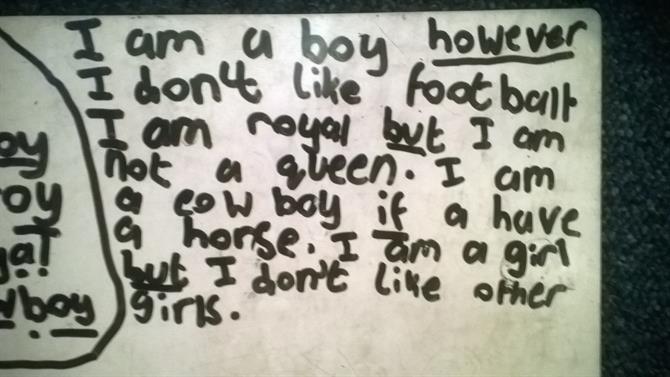 I am a boy however
I don't like football
I am royal but I am
not a queen. I am
a cowboy if a have
a horse. I am a girl
but I don't like other
girls.
oy
oy
yal
wboy